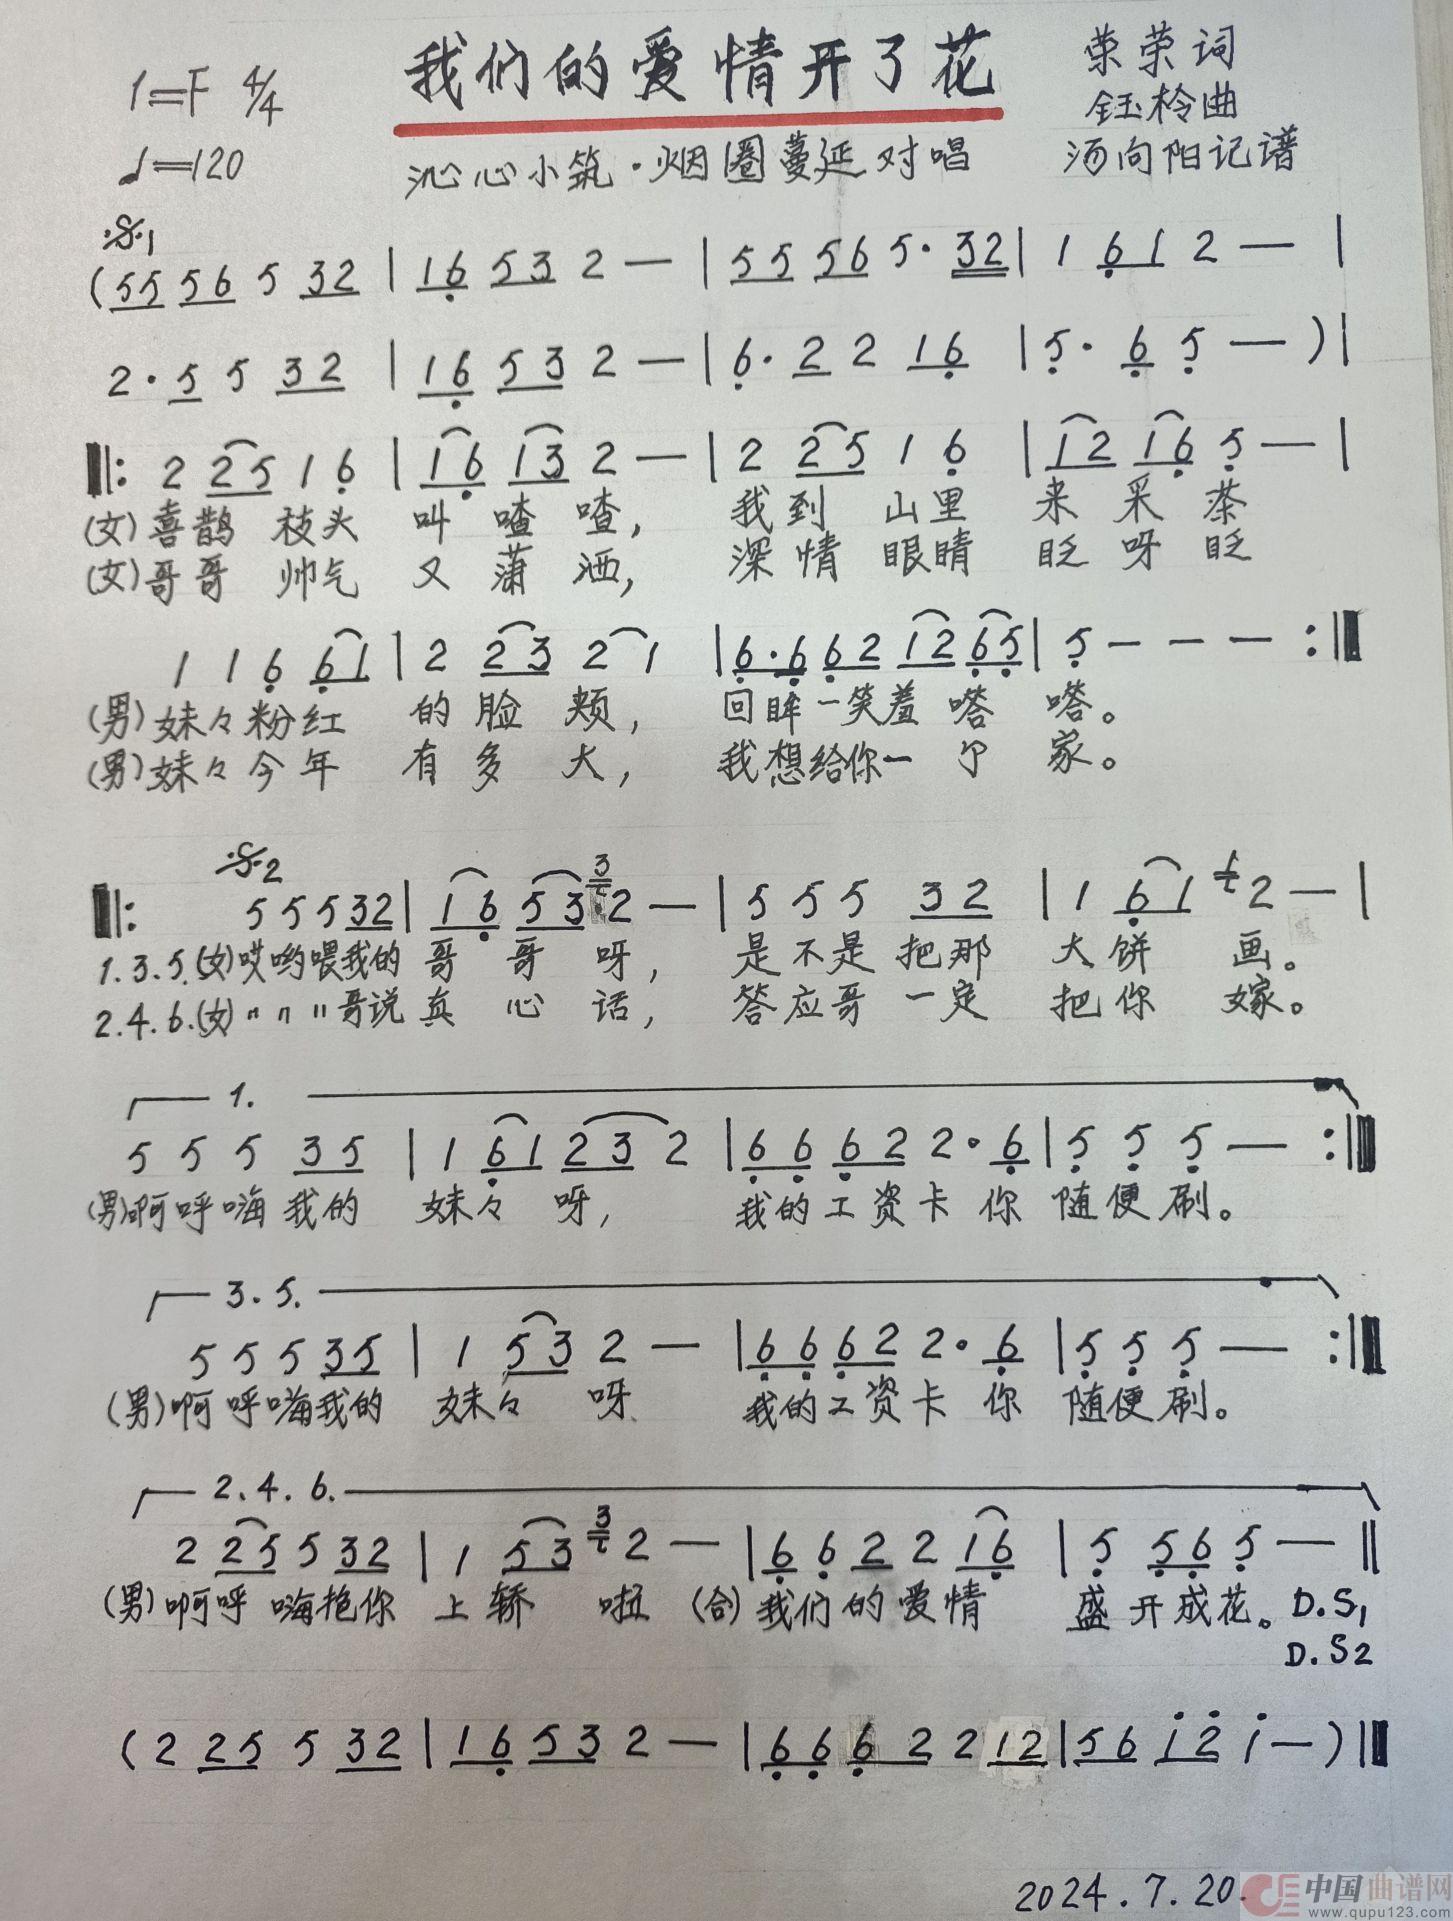 我们的爱情开了花
1=F 4/4
♩=120
荣荣词
钰柃曲
汤向阳记谱
沁心小筑·烟圈蔓延对唱
𝄋1
(55 56 5 32 | 16 53 2 — | 55 56 5· 32 | 1 61 2 — |
2· 5 5 32 | 16 53 2 — | 6· 2 2 16 | 5· 6 5 — )|
‖: 2 25 1 6 | 16 13 2 — | 2 25 1 6 | 12 16 5 — |
(女)喜鹊 枝头 叫 喳 喳, 我到 山里 来 采 茶
(女)哥哥 帅气 又 潇 洒, 深情 眼睛 眨 呀 眨
1 1 6 61 | 2 23 2 1 | 6·6 62 12 65 | 5 — — — :‖
(男)妹々粉红 的 脸 颊, 回眸一笑羞 嗒 嗒。
(男)妹々今年 有 多 大, 我想给你一 个 家。
𝄋2
‖: 5 5 5 32 | 16 53 3 2 — | 5 5 5 32 | 1 61 1 2 — |
1.3.5.(女)哎哟喂我的 哥 哥 呀, 是不是把那 大 饼 画。
2.4.6.(女)〃 〃 〃哥说 真 心 话, 答应哥一定 把你 嫁。
1.
5 5 5 35 | 1 61 23 2 | 66 62 2· 6 | 5 5 5 — :‖
(男)啊呼嗨 我的 妹々 呀, 我的工资卡 你 随便刷。
3.5.
5 5 5 35 | 1 53 2 — | 66 62 2· 6 | 5 5 5 — :‖
(男)啊呼嗨我的 妹々 呀 我的工资卡 你 随便刷。
2.4.6.
2 25 5 32 | 1 53 3 2 — | 6 6 2 2 16 | 5 56 5 — ‖
(男)啊呼 嗨抱你 上 轿 啦 (合)我们的爱情 盛开成花。D.S1
D.S2
(2 25 5 32 | 16 53 2 — | 66 62 2 12 | 56 1̇2̇ 1̇ — )‖
2024.7.20.
中国曲谱网
www.qupu123.com